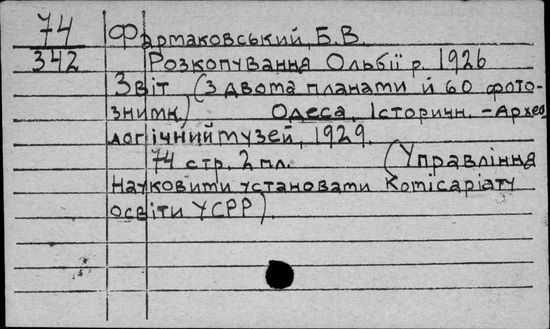 74 Фармаковський, Б.В.
342 Розкопування Ольбії р. 1926
Звіт (з двома планами й 60 фото-
знимк.) Одеса, Історичн.-Архео
логічний музей, 1929.
74 стр. 2 пл. (Управління
Науковими установами Комісаріату
освіти УСРР).